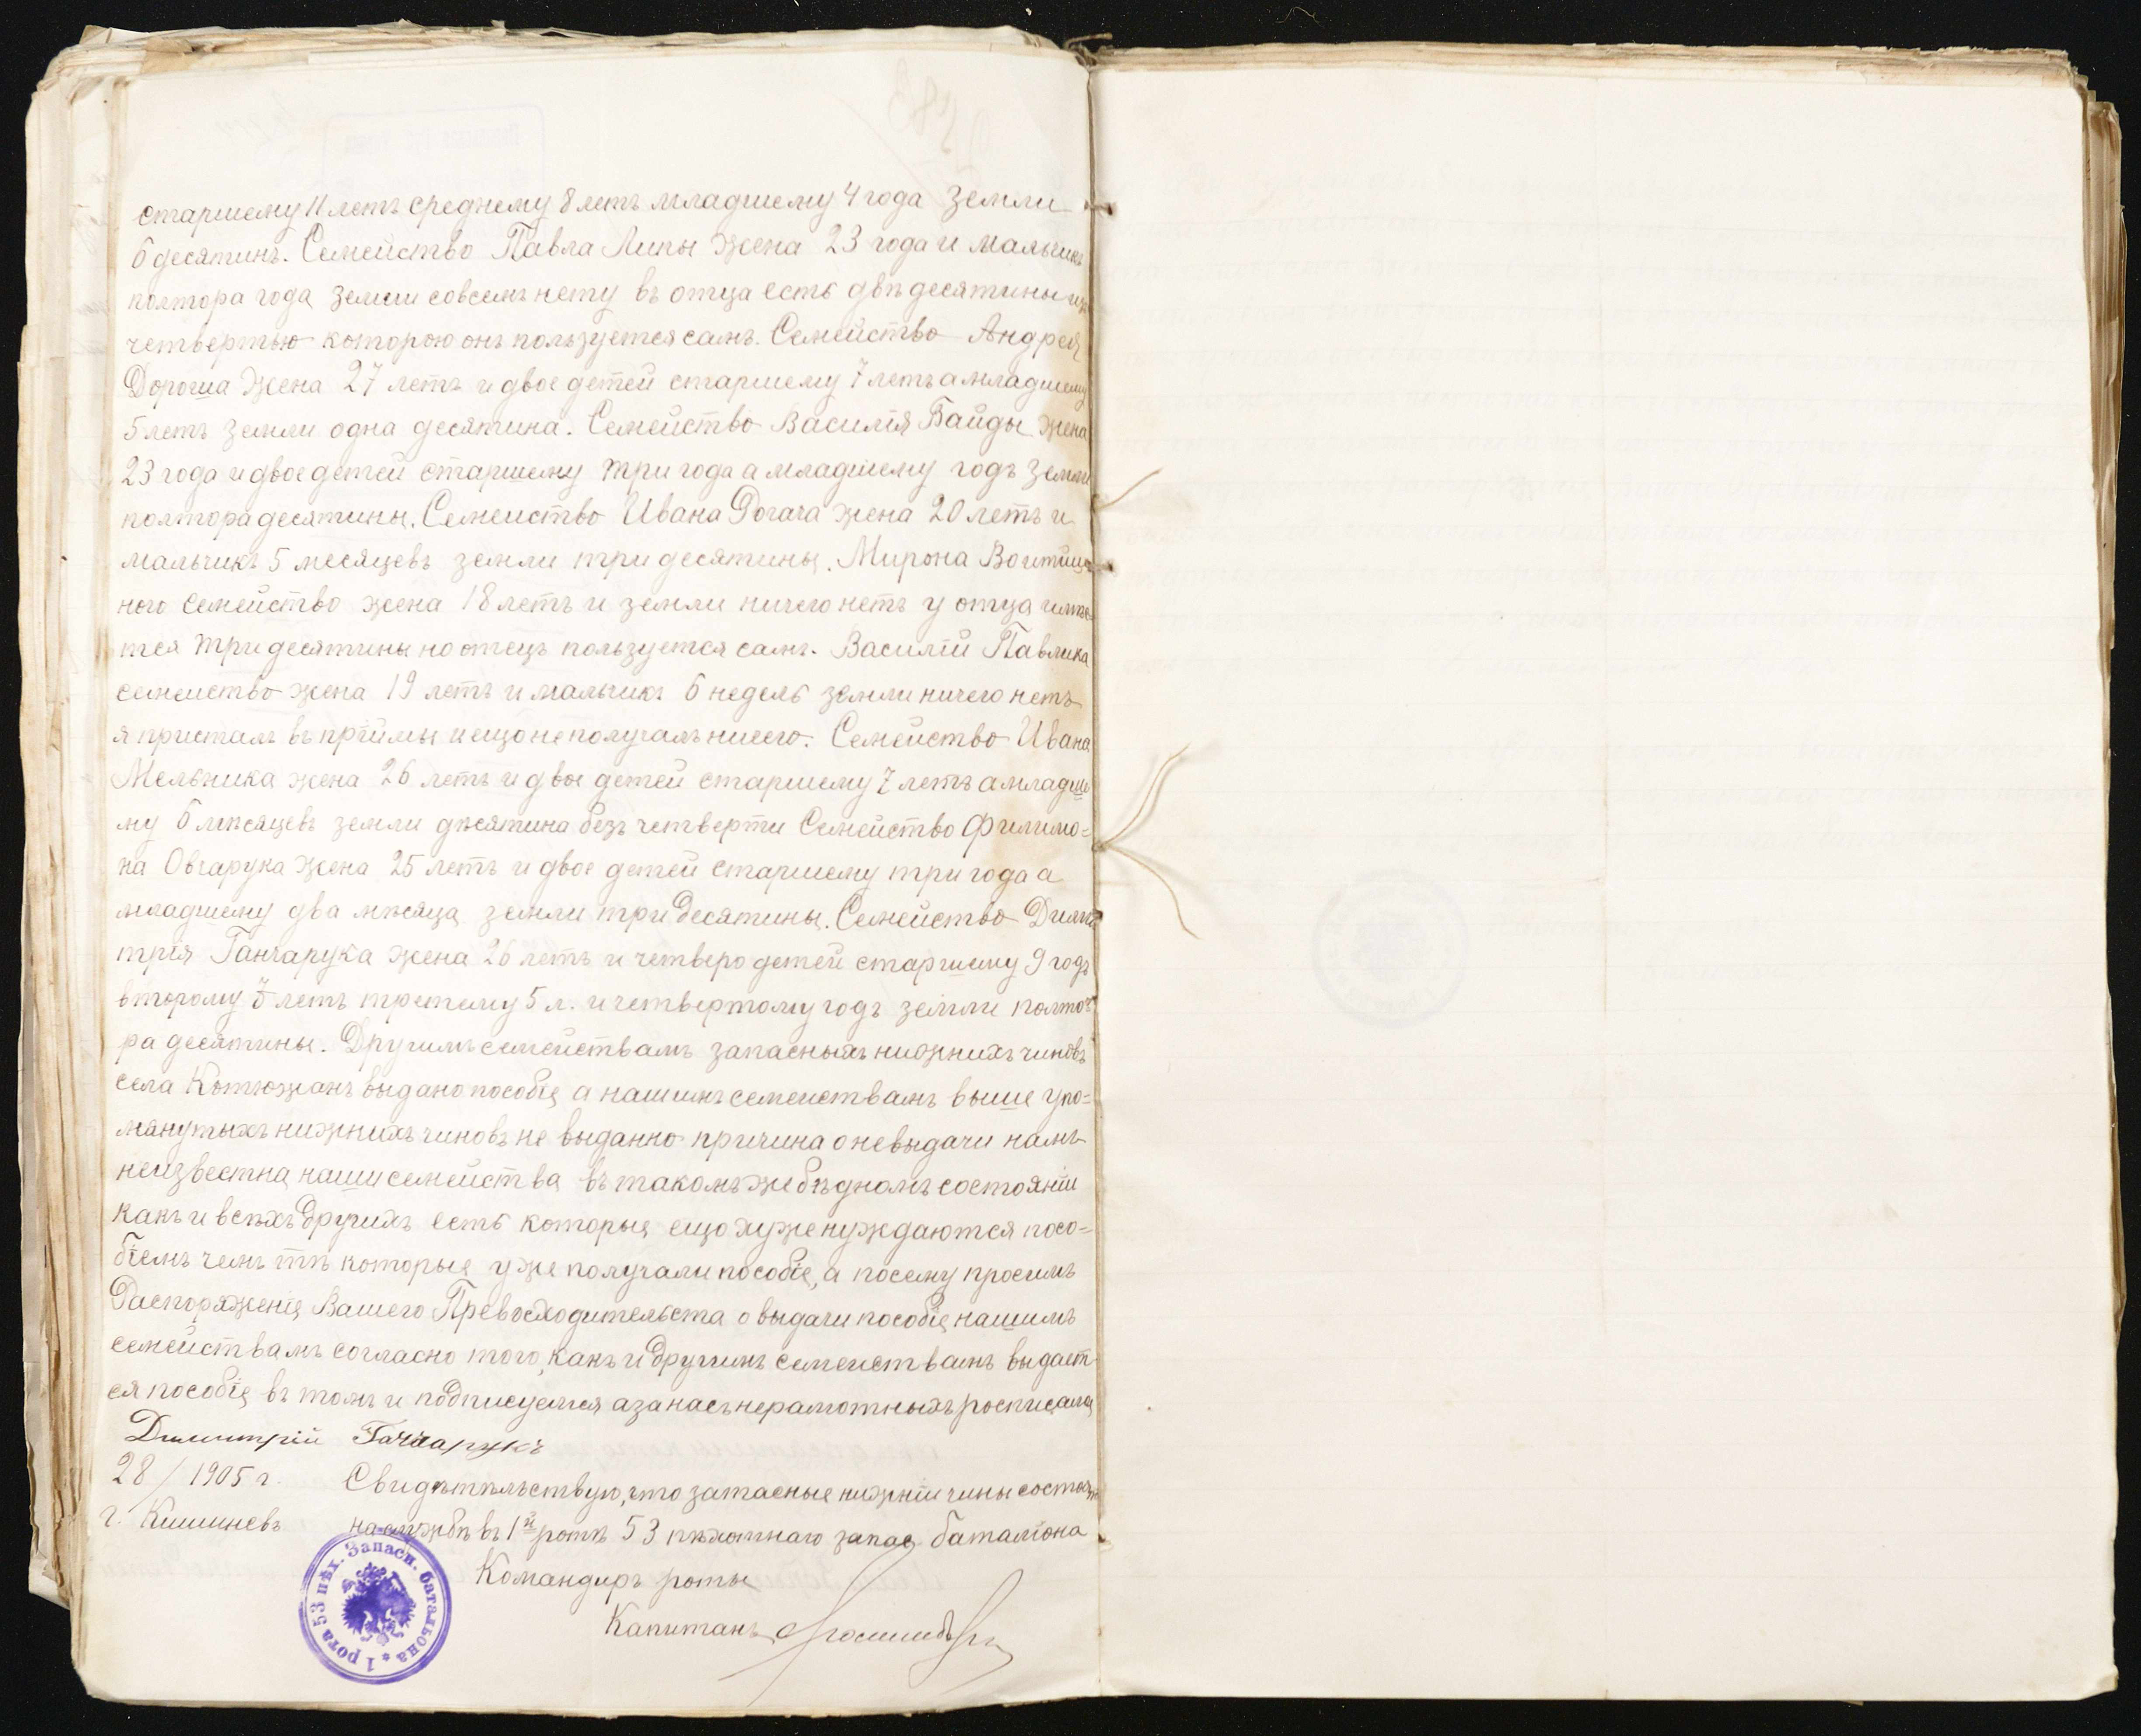 старшему 11 летъ среднему 8 летъ младшему 4 года земли
6 десятинъ. Семейство Павла Липы жена 23 года и мальчикъ
полтора года земли совсемъ нету въ отца есть двѣ десятины изъ
четвертью которою онъ пользуется самъ. Семейство Андрея
Дороша жена 27 летъ и двое детей старшему 7 летъ а младшему
5 летъ земли одна десятина. Семейство Василія Байды жена
23 года и двое детей старшему три года а младшему годъ земли
полтора десятины. Семейство Ивана Рогача жена 20 летъ и
мальчикъ 5 месяцевъ земли три десятины. Мирона
ного семейство жена 18 летъ и земли ничего нетъ у отца имѣе
тся три десятины но отецъ пользуется самъ. Василій Павлика
семейство жена 19 летъ и мальчикъ 6 недель земли ничего нетъ
я присталъ въ пріймы и ещо не получалъ ничего. Семейство Ивана
Мельника жена 26 летъ и двое детей старшему 7 летъ а младше
му 6 мѣсяцевъ земли дѣсятина безъ четверти Семейство Филимо=
на Овчарука жена 25 летъ и двое детей старшему три года а
младшему два мѣсяца земли три десятины. Семейство Дими
трія Ганчарука жена 26 летъ и четверо детей старшему 9 годъ
второму 7 летъ третему 5 л. и четвертому годъ земли полто=
ра десятины. Другимъ семействамъ запасныхъ нижнихъ чиновъ
села Котюжанъ выдано пособіе а нашимъ семействамъ выше упо=
мянутыхъ нижнихъ чиновъ не выданно причина о невыдачи намъ
неизвестна наши семейства въ такомъ же бѣдномъ состояніи
какъ и всѣхъ другихъ есть которые ещо хуже нуждаются посо=
біемъ чемъ тѣ которые уже получали пособіе, а посему просимъ
Распоряженія Вашего Превосходительста о выдачи пособіе нашимъ
семействамъ согласно того, какъ и другимъ семействамъ выдает
ся пособіе въ томъ и подписуемся а за насъ неграмотныхъ росписался
Димитрій Ганчарукъ
28/1905 г. Свидѣтельствую, что запасные нижніи чины состоятъ
г. Кишиневъ на службѣ въ 1й ротѣ 53 пѣхотнаго запас баталіона
Командиръ роты
Капитанъ
1 рота 53 пѣх. Запасн. батальона *